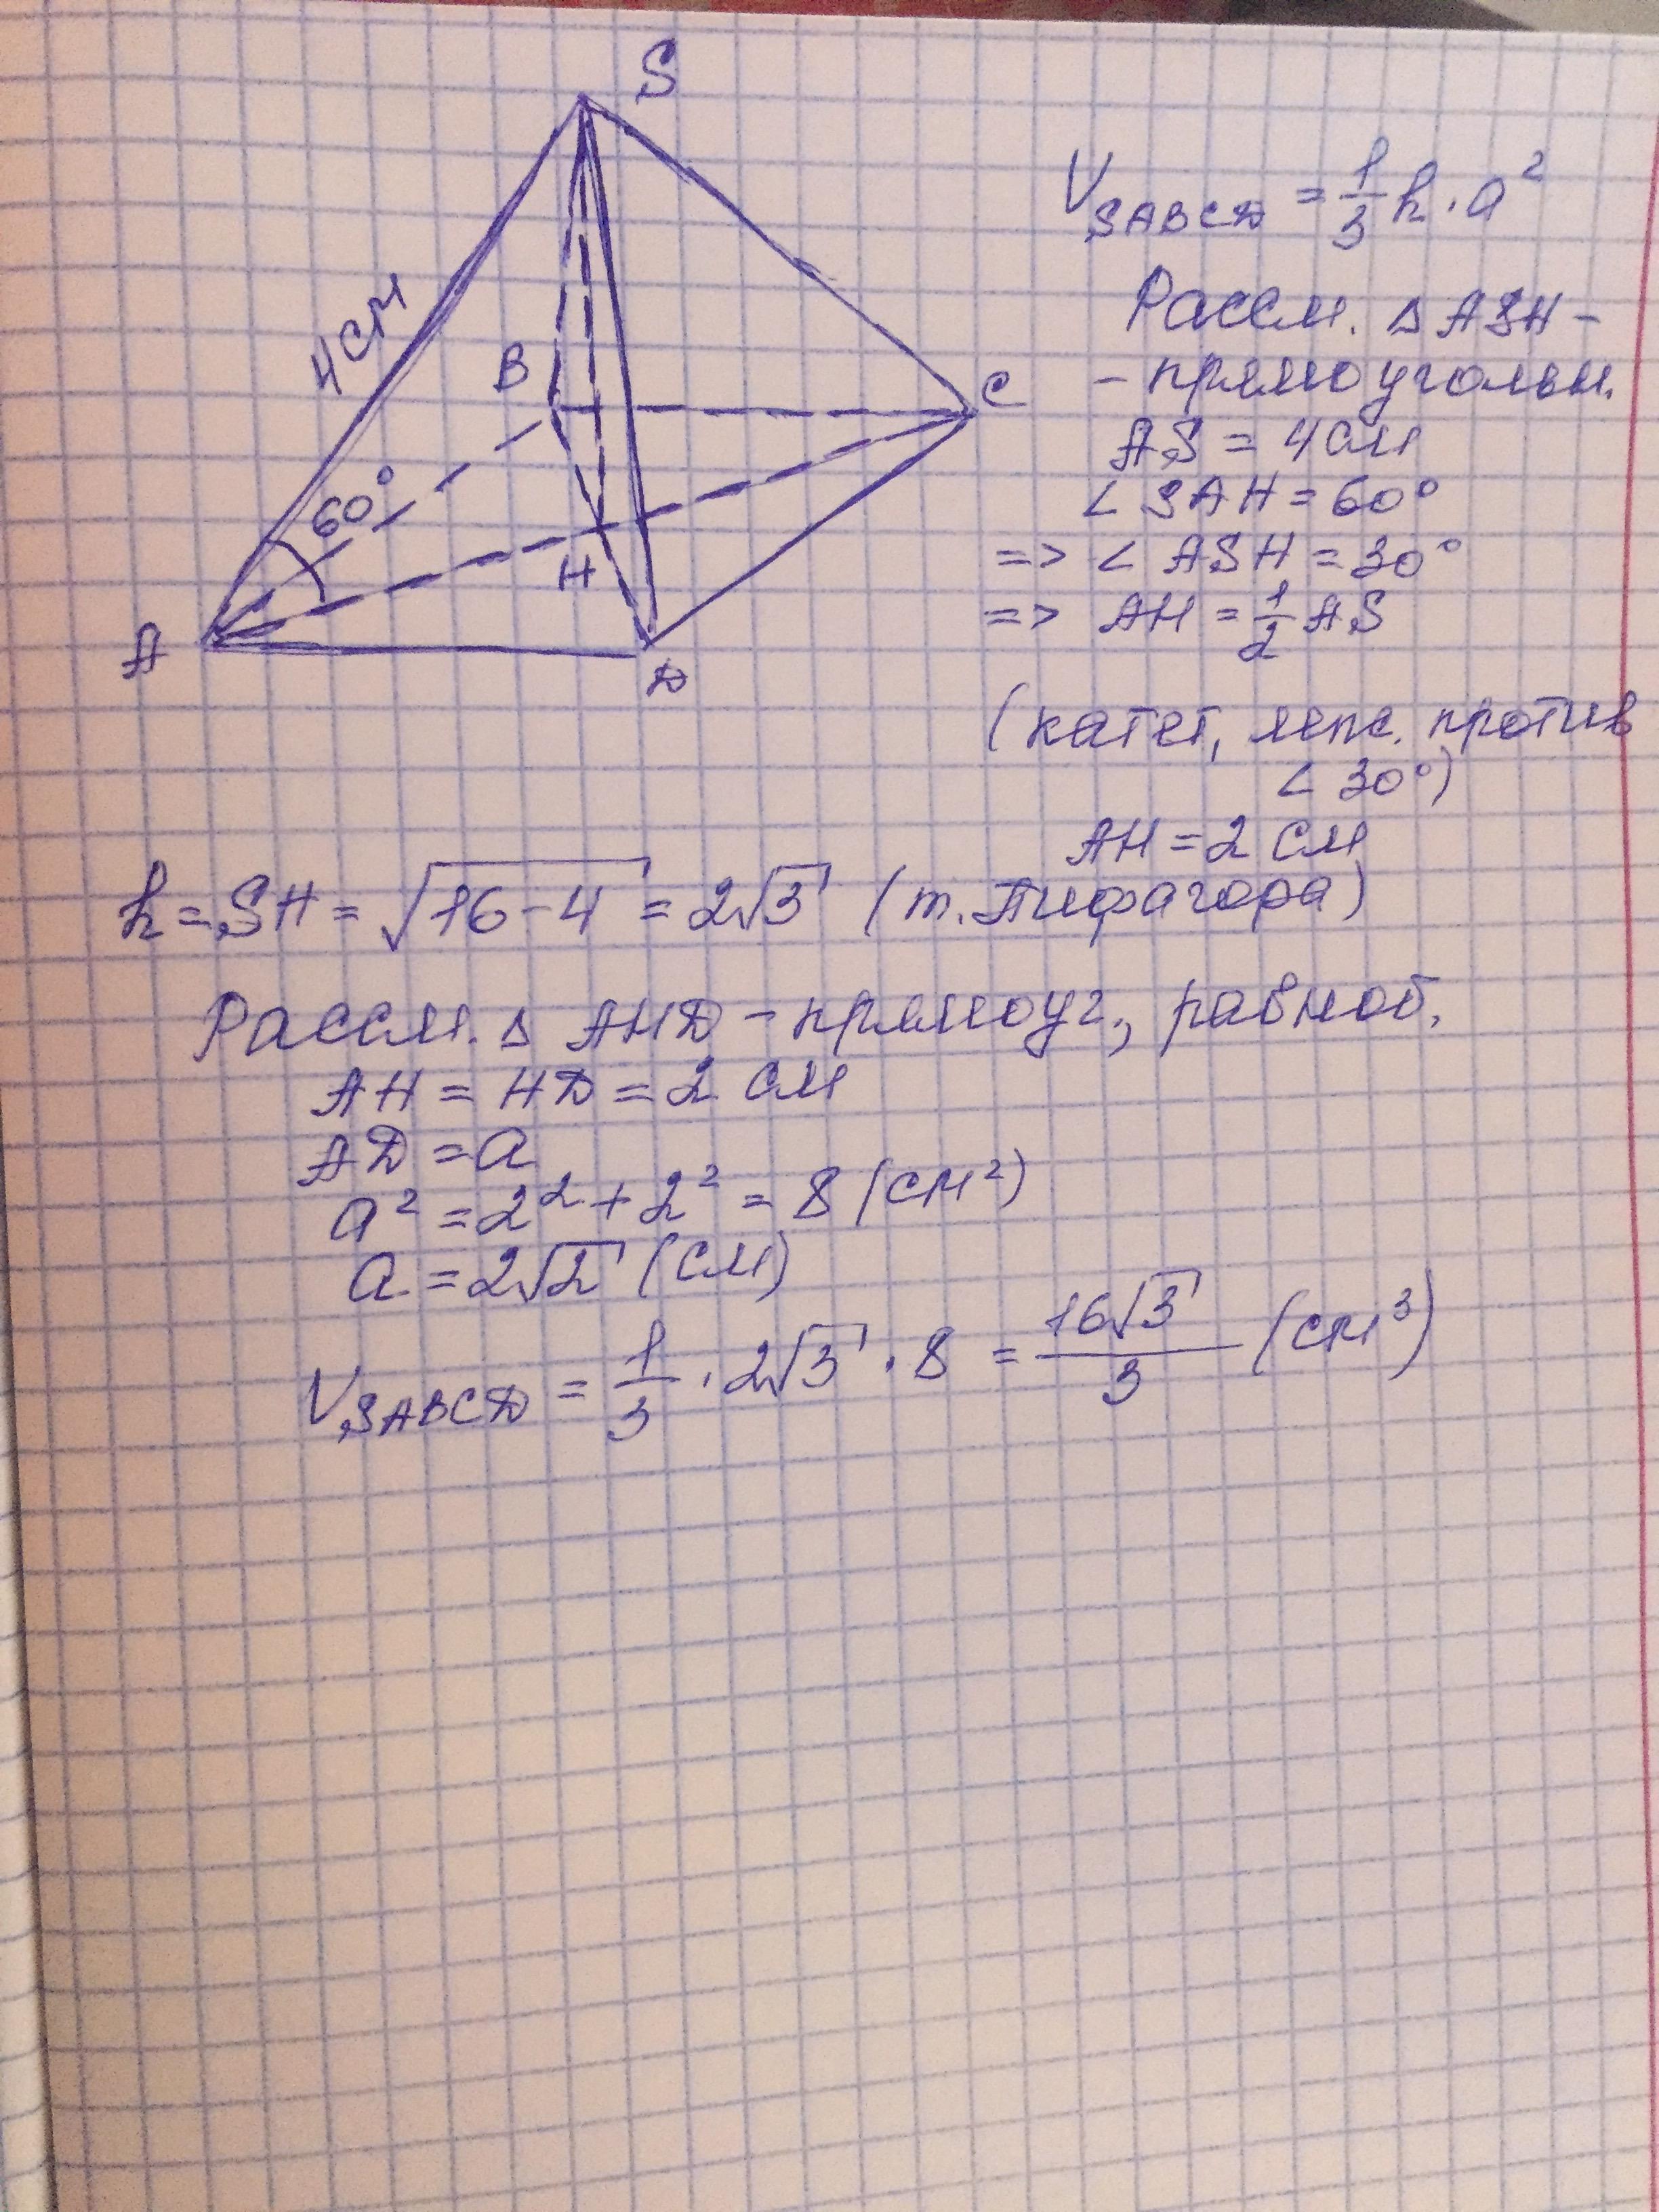 S
4см
B
C
60°
H
A
D
V SABCD = 1/3 h · a²
Рассм. △ ASH –
– прямоугольн.
AS = 4 см
∠ SAH = 60°
=> ∠ ASH = 30°
=> AH = 1/2 AS
(катет, леж. против
∠ 30°)
AH = 2 см
h = SH = √16-4 = 2√3 (т. Пифагора)
Рассм. △ AHD – прямоуг., равноб.
AH = HD = 2 см
AD = a
a² = 2² + 2² = 8 (см²)
a = 2√2 (см)
V SABCD = 1/3 · 2√3 · 8 = 16√3/3 (см³)